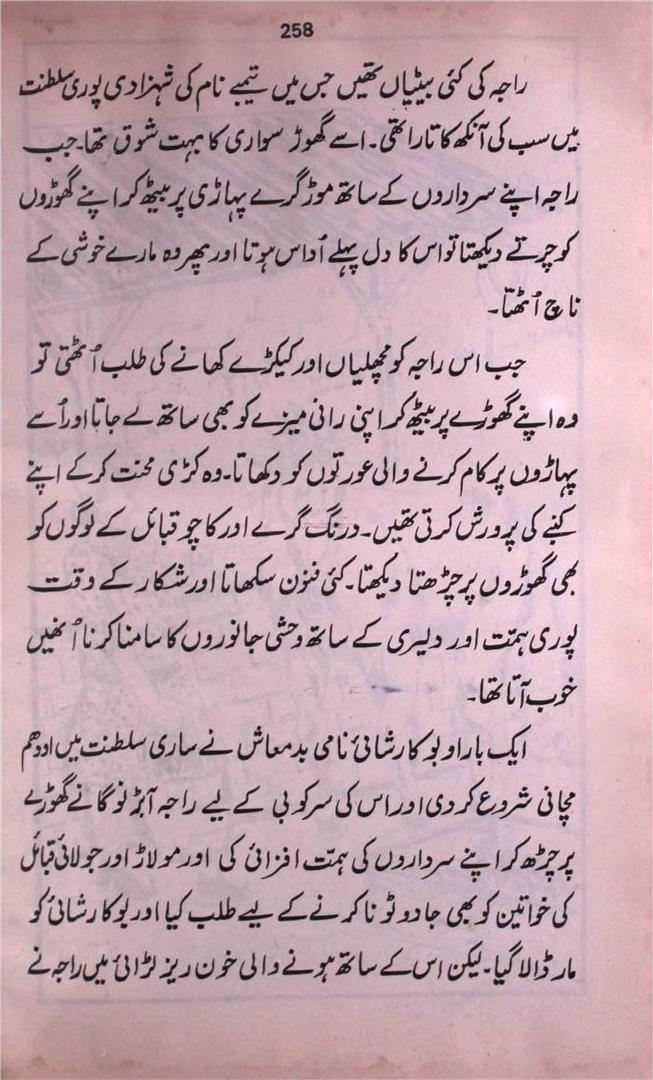 258
راجہ کی کئی بیٹیاں تھیں جس میں تیمے نام کی شہزادی پوری سلطنت
میں سب کی آنکھ کا تارا تھی۔ اسے گھوڑ سواری کا بہت شوق تھا۔ جب
راجہ اپنے سرداروں کے ساتھ موڑگرے پہاڑی پر بیٹھ کر اپنے گھوڑوں
کو چرتے دیکھتا تو اس کا دل پہلے اُداس ہوتا اور پھر وہ مارے خوشی کے
ناچ اُٹھتا۔
جب اس راجہ کو مچھلیاں اور کیکڑے کھانے کی طلب اُٹھتی تو
وہ اپنے گھوڑے پر بیٹھ کر اپنی رانی میزے کو بھی ساتھ لے جاتا اور اُسے
پہاڑوں پر کام کرنے والی عورتوں کو دکھاتا۔ وہ کڑی محنت کرکے اپنے
کنبے کی پرورش کرتی تھیں۔ درنگ گرے اور کاچو قبائل کے لوگوں کو
بھی گھوڑوں پر چڑھتا دیکھتا۔ کئی فنون سکھاتا اور شکار کے وقت
پوری ہمّت اور دلیری کے ساتھ وحشی جانوروں کا سامنا کرنا اُنھیں
خوب آتا تھا۔
ایک بار او بوکارشائی نامی بدمعاش نے ساری سلطنت میں اودھم
مچانی شروع کردی اور اس کی سرکوبی کے لیے راجہ آبڑنوگا نے گھوڑے
پر چڑھ کر اپنے سرداروں کی ہمّت افزائی کی اور مولاڑ اور جولائی قبائل
کی خواتین کو بھی جادو ٹونا کرنے کے لیے طلب کیا اور بوکارشائی کو
مار ڈالا گیا۔ لیکن اس کے ساتھ ہونے والی خون ریز لڑائی میں راجہ نے